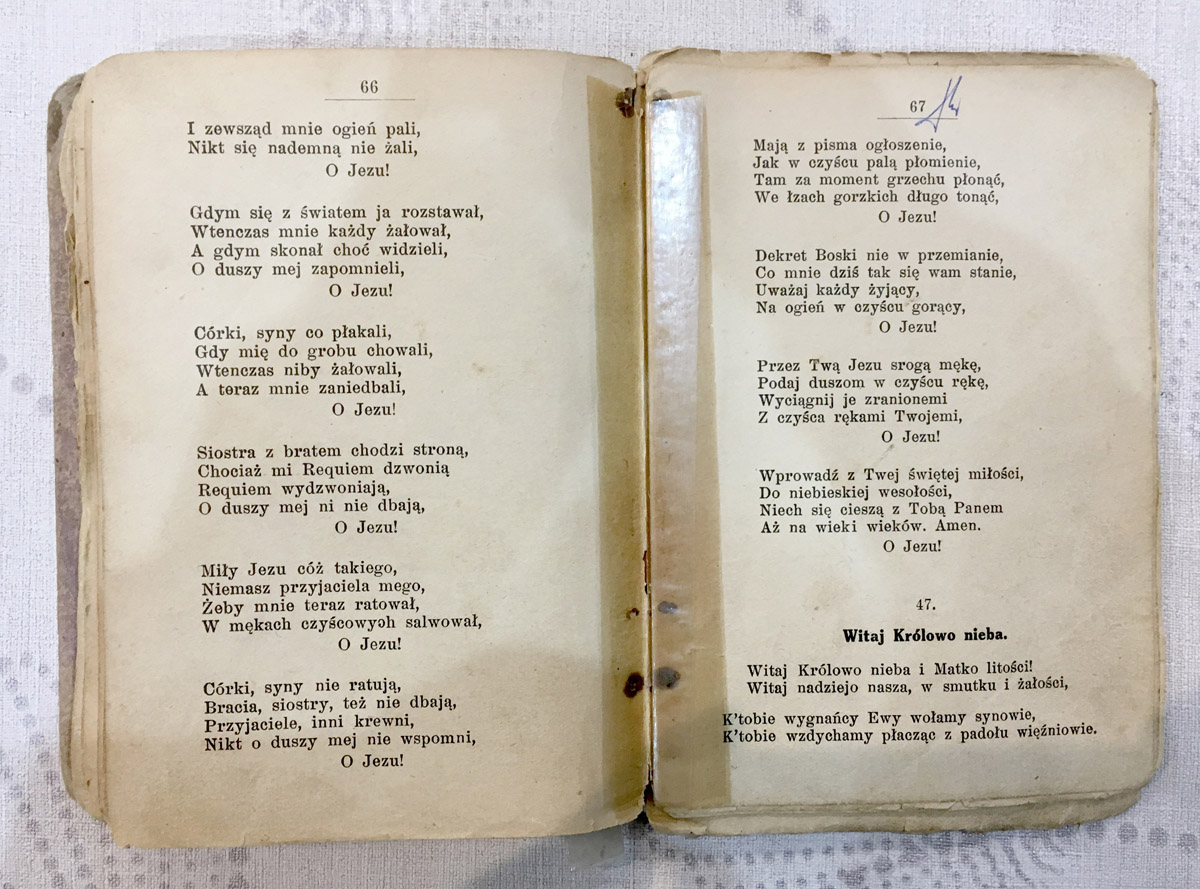 66
I zewsząd mnie ogień pali,
Nikt się nademną nie żali,
O Jezu!
Gdym się z światem ja rozstawał,
Wtenczas mnie każdy żałował,
A gdym skonał choć widzieli,
O duszy mej zapomnieli,
O Jezu!
Córki, syny co płakali,
Gdy mię do grobu chowali,
Wtenczas niby żałowali,
A teraz mnie zaniedbali,
O Jezu!
Siostra z bratem chodzi stroną,
Chociaż mi Requiem dzwonią
Requiem wydzwoniają,
O duszy mej ni nie dbają,
O Jezu!
Miły Jezu cóż takiego,
Niemasz przyjaciela mego,
Żeby mnie teraz ratował,
W mękach czyścowych salwował,
O Jezu!
Córki, syny nie ratują,
Bracia, siostry, też nie dbają,
Przyjaciele, inni krewni,
Nikt o duszy mej nie wspomni,
O Jezu!
67
Mają z pisma ogłoszenie,
Jak w czyścu palą płomienie,
Tam za moment grzechu płonąć,
We łzach gorzkich długo tonąć,
O Jezu!
Dekret Boski nie w przemianie,
Co mnie dziś tak się wam stanie,
Uważaj każdy żyjący,
Na ogień w czyścu gorący,
O Jezu!
Przez Twą Jezu srogą mękę,
Podaj duszom w czyścu rękę,
Wyciągnij je zranionemi
Z czyśca rękami Twojemi,
O Jezu!
Wprowadź z Twej świętej miłości,
Do niebieskiej wesołości,
Niech się cieszą z Tobą Panem
Aż na wieki wieków. Amen.
O Jezu!
47.
Witaj Królowo nieba.
Witaj Królowo nieba i Matko litości!
Witaj nadziejo nasza, w smutku i żałości,
K'tobie wygnańcy Ewy wołamy synowie,
K'tobie wzdychamy płacząc z padołu więźniowie.